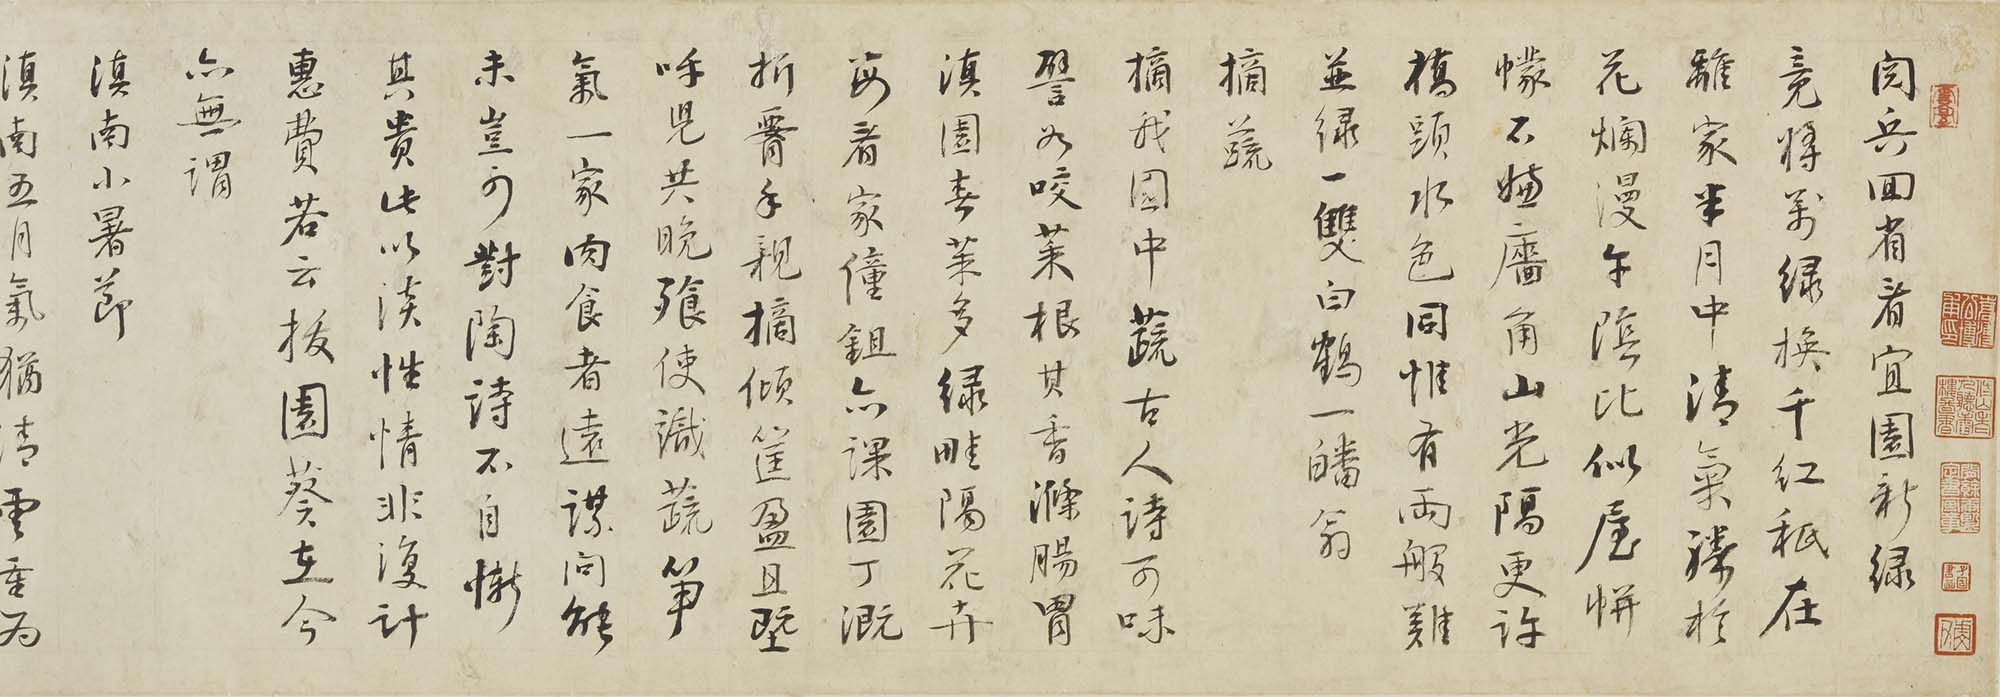 閱兵回省看宜園新綠
竟將萬綠換千紅秖在
離家半月中清氣勝於
花爛漫午陰比似屋帡
幪不嫌廧角山光隔更許
橋頭水色同惟有兩般難
並綠一雙白鶴一皤翁
摘蔬
摘我園中蔬古人詩可味
譬如咬菜根其香滌腸胃
滇園春菜多綠畦隔花卉
每看家僮鉏亦課園丁溉
折腰手親摘傾筐盈且塈
呼兒共晚飱使識蔬筍
氣一家肉食者遠謀問能
未豈可對陶詩不自慚
其貴此以淡性情非復計
惠費若云拔園葵在今
亦無謂
滇南小暑節
滇南五月氣猶清雲重為